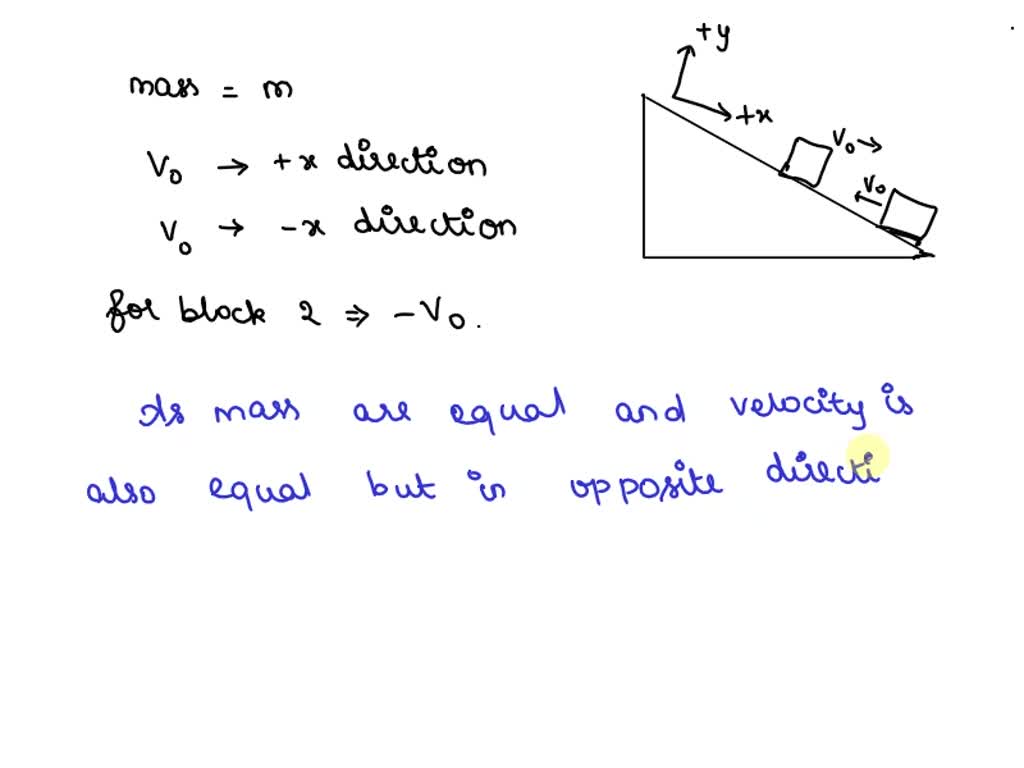 mass = m
V₀ → +x direction
V₀ → -x direction
for block 2 ⇒ -V₀.
As mass are equal and velocity is
also equal but in opposite directi
+y
+x
V₀ →
V₀